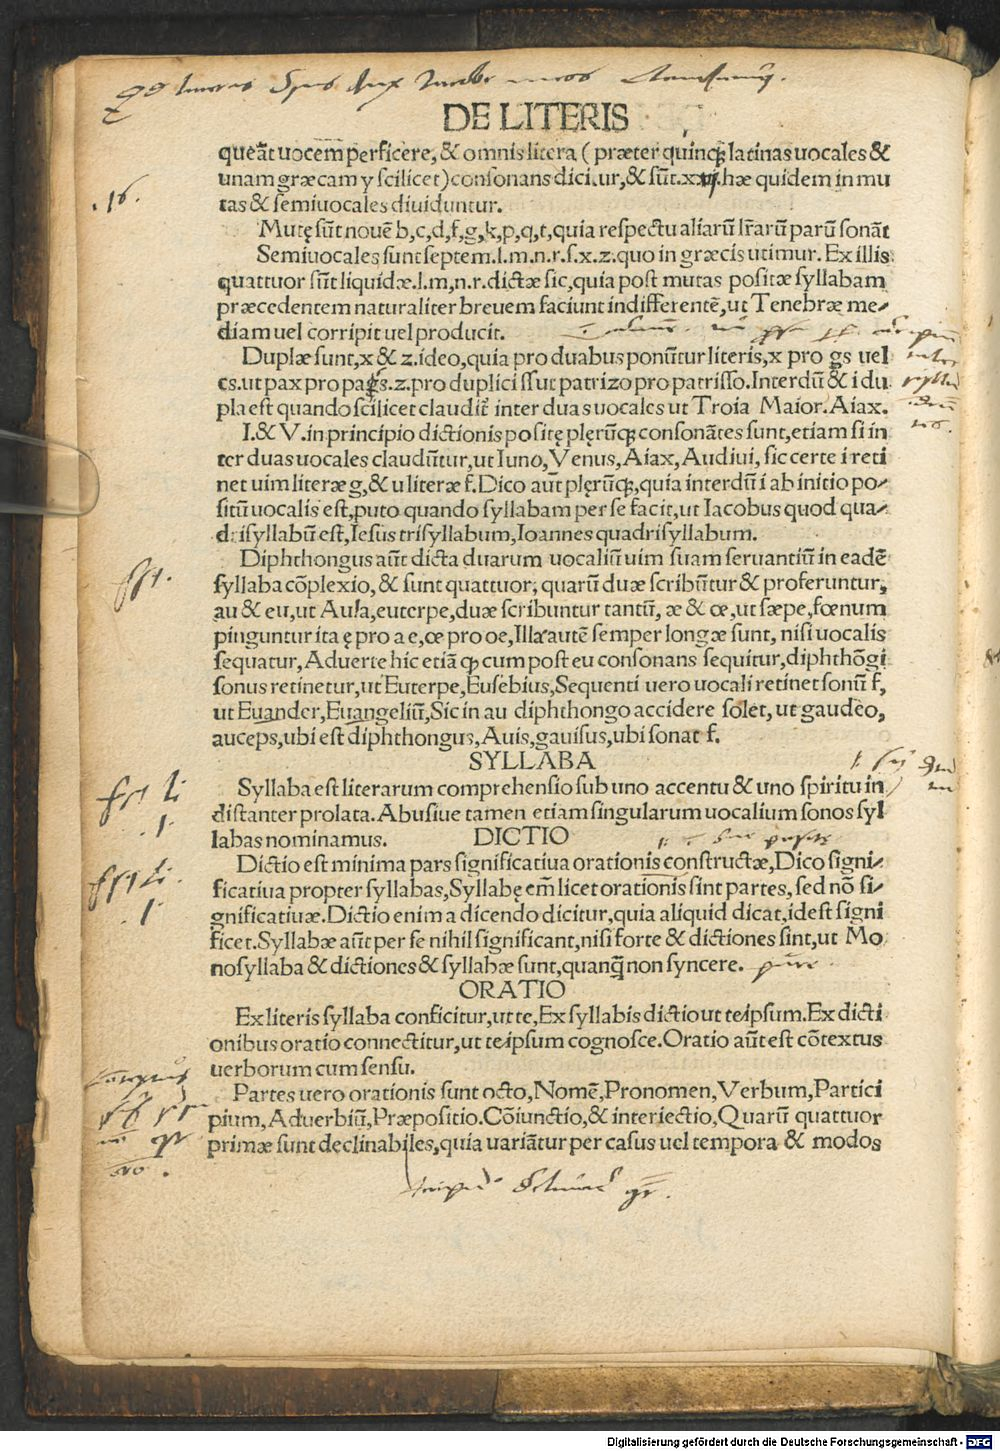 DE LITERIS
queãt uocem perficere, & omnis litera (præter quinq; latinas uocales &
unam græcam y scilicet) consonans dicitur, & sũt.xvj.hæ quidem in mu
tas & semiuocales diuiduntur.
.16.
Mutę sũt nouẽ b,c,d,f,g,k,p,q,t,quia respectu aliarũ lr̃arũ parũ sonãt
Semiuocales sunt septem.l.m.n.r.s.x.z.quo in græcis utimur. Ex illis
quattuor sũt liquidæ.l.m,n.r.dictæ sic,quia post mutas positæ syllabam
præcedentem naturaliter breuem faciunt indifferentẽ,ut Tenebræ me/
diam uel corripit uel producit.
Duplæ sunt,x & z.ideo,quia pro duabus ponũtur literis,x pro gs uel
cs.ut pax pro pags.z.pro duplici ss ut patrizo pro patrisso.Interdũ & i du
pla est quando scilicet claudit̃ inter duas uocales ut Troia Maior.Aiax.
I.& V.in principio dictionis positę plęrũq; consonãtes sunt,etiam si in
ter duas uocales claudũtur,ut Iuno,Venus,Aiax,Audiui, sic certe i reti
net uim literæ g,& u literæ f.Dico aũt plęrũq;,quia interdũ i ab initio po/
sitũ uocalis est,puto quando syllabam per se facit,ut Iacobus quod qua/
drisyllabũ est,Iesus trisyllabum,Ioannes quadrisyllabum.
Diphthongus aũt dicta duarum uocaliũ uim suam seruantiũ in eadẽ
syllaba cõplexio, & sunt quattuor, quarũ duæ scribũtur & proferuntur,
au & eu,ut Aula,euterpe,duæ scribuntur tantũ, æ & œ,ut sæpe,fœnum
pinguntur ita ę pro a e,œ pro oe,Illæ autẽ semper longæ sunt, nisi uocalis
sequatur,Aduerte hic etiã ꝙ cum post eu consonans sequitur,diphthõgi
sonus retinetur,ut Euterpe,Eusebius,Sequenti uero uocali retinet sonũ f,
ut Euander,Euangeliũ,Sic in au diphthongo accidere solet, ut gaudeo,
auceps,ubi est diphthongus,Auis,gauisus,ubi sonat f.
SYLLABA
Syllaba est literarum comprehensio sub uno accentu & uno spiritu in
distanter prolata.Abusiue tamen etiam singularum uocalium sonos syl
labas nominamus. DICTIO
Dictio est minima pars significatiua orationis constructæ,Dico signi/
ficatiua propter syllabas,Syllabę em̃ licet orationis sint partes, sed nõ si/
gnificatiuæ.Dictio enim a dicendo dicitur,quia aliquid dicat,idest signi
ficet.Syllabæ aũt per se nihil significant,nisi forte & dictiones sint,ut Mo
nosyllaba & dictiones & syllabæ sunt,quanq̃ non syncere.
ORATIO
Ex literis syllaba conficitur,ut te,Ex syllabis dictio ut teipsum.Ex dicti
onibus oratio connectitur,ut teipsum cognosce.Oratio aũt est cõtextus
uerborum cum sensu.
Partes uero orationis sunt octo,Nomẽ,Pronomen,Verbum,Partici
pium,Aduerbiũ,Præpositio.Cõiunctio,& interiectio,Quarũ quattuor
primæ sunt declinabiles,quia uariãtur per casus uel tempora & modos
Digitalisierung gefördert durch die Deutsche Forschungsgemeinschaft - DFG